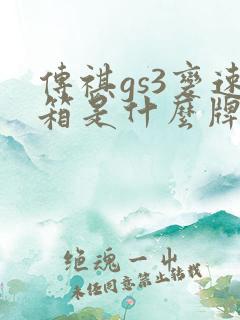 傳祺gs3變速
箱是什麼牌
绝魂一出
未经同意禁止转载